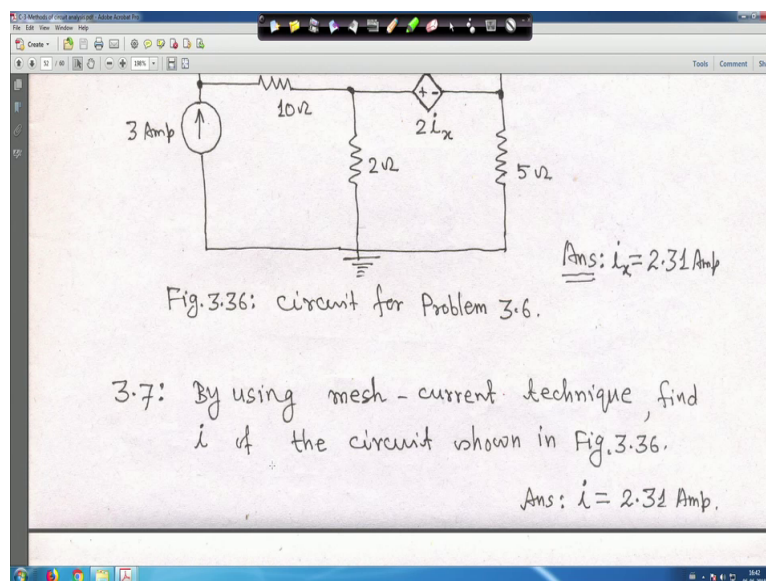 C-3-Methods of circuit analysis.pdf - Adobe Acrobat Pro
File Edit View Window Help
Create
52 / 60
198%
Tools Comment Sh
10Ω
3 Amp
2ix
2Ω
5Ω
Ans: ix = 2.31 Amp
Fig. 3.36: circuit for Problem 3.6.
3.7: By using mesh-current technique, find
i of the circuit shown in Fig. 3.36.
Ans: i = 2.31 Amp.
16:42